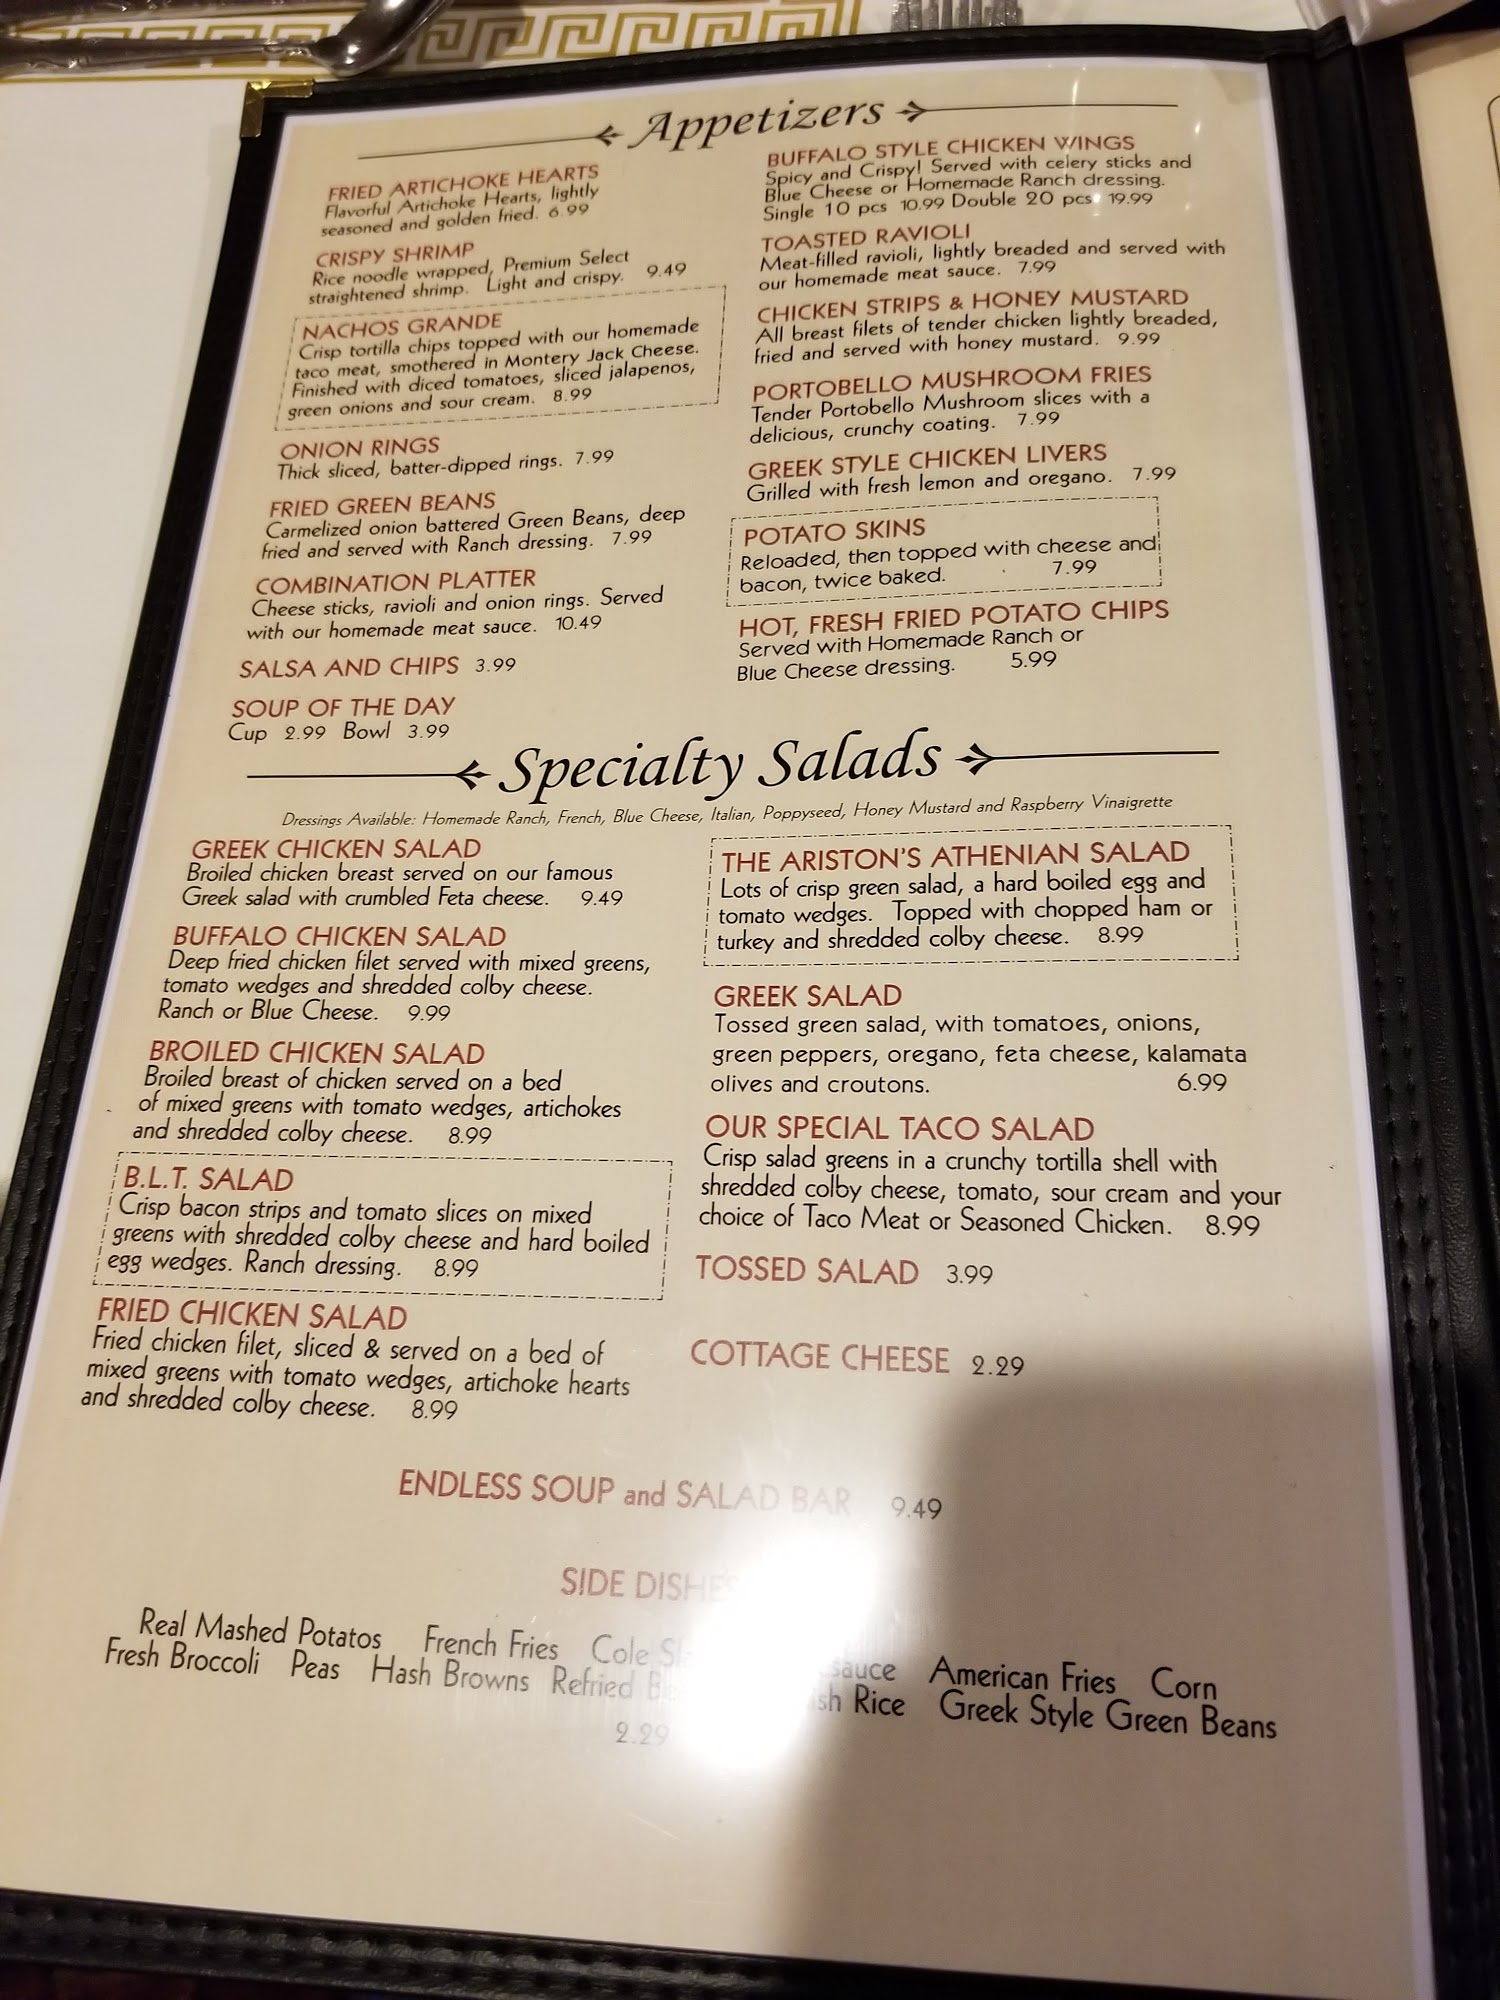 Appetizers
FRIED ARTICHOKE HEARTS
Flavorful Artichoke Hearts, lightly
seasoned and golden fried. 6.99
CRISPY SHRIMP
Rice noodle wrapped, Premium Select
straightened shrimp. Light and crispy. 9.49
NACHOS GRANDE
Crisp tortilla chips topped with our homemade
taco meat, smothered in Montery Jack Cheese.
Finished with diced tomatoes, sliced jalapenos,
green onions and sour cream. 8.99
ONION RINGS
Thick sliced, batter-dipped rings. 7.99
FRIED GREEN BEANS
Carmelized onion battered Green Beans, deep
fried and served with Ranch dressing. 7.99
COMBINATION PLATTER
Cheese sticks, ravioli and onion rings. Served
with our homemade meat sauce. 10.49
SALSA AND CHIPS 3.99
SOUP OF THE DAY
Cup 2.99 Bowl 3.99
BUFFALO STYLE CHICKEN WINGS
Spicy and Crispy! Served with celery sticks and
Blue Cheese or Homemade Ranch dressing.
Single 10 pcs 10.99 Double 20 pcs 19.99
TOASTED RAVIOLI
Meat-filled ravioli, lightly breaded and served with
our homemade meat sauce. 7.99
CHICKEN STRIPS & HONEY MUSTARD
All breast filets of tender chicken lightly breaded,
fried and served with honey mustard. 9.99
PORTOBELLO MUSHROOM FRIES
Tender Portobello Mushroom slices with a
delicious, crunchy coating. 7.99
GREEK STYLE CHICKEN LIVERS
Grilled with fresh lemon and oregano. 7.99
POTATO SKINS
Reloaded, then topped with cheese and
bacon, twice baked. 7.99
HOT, FRESH FRIED POTATO CHIPS
Served with Homemade Ranch or
Blue Cheese dressing. 5.99
Specialty Salads
Dressings Available: Homemade Ranch, French, Blue Cheese, Italian, Poppyseed, Honey Mustard and Raspberry Vinaigrette
GREEK CHICKEN SALAD
Broiled chicken breast served on our famous
Greek salad with crumbled Feta cheese. 9.49
BUFFALO CHICKEN SALAD
Deep fried chicken filet served with mixed greens,
tomato wedges and shredded colby cheese.
Ranch or Blue Cheese. 9.99
BROILED CHICKEN SALAD
Broiled breast of chicken served on a bed
of mixed greens with tomato wedges, artichokes
and shredded colby cheese. 8.99
B.L.T. SALAD
Crisp bacon strips and tomato slices on mixed
greens with shredded colby cheese and hard boiled
egg wedges. Ranch dressing. 8.99
FRIED CHICKEN SALAD
Fried chicken filet, sliced & served on a bed of
mixed greens with tomato wedges, artichoke hearts
and shredded colby cheese. 8.99
THE ARISTON'S ATHENIAN SALAD
Lots of crisp green salad, a hard boiled egg and
tomato wedges. Topped with chopped ham or
turkey and shredded colby cheese. 8.99
GREEK SALAD
Tossed green salad, with tomatoes, onions,
green peppers, oregano, feta cheese, kalamata
olives and croutons. 6.99
OUR SPECIAL TACO SALAD
Crisp salad greens in a crunchy tortilla shell with
shredded colby cheese, tomato, sour cream and your
choice of Taco Meat or Seasoned Chicken. 8.99
TOSSED SALAD 3.99
COTTAGE CHEESE 2.29
ENDLESS SOUP and SALAD BAR 9.49
SIDE DISHES
Real Mashed Potatos French Fries Cole American Fries Corn
Fresh Broccoli Peas Hash Browns Refried Rice Greek Style Green Beans
2.29